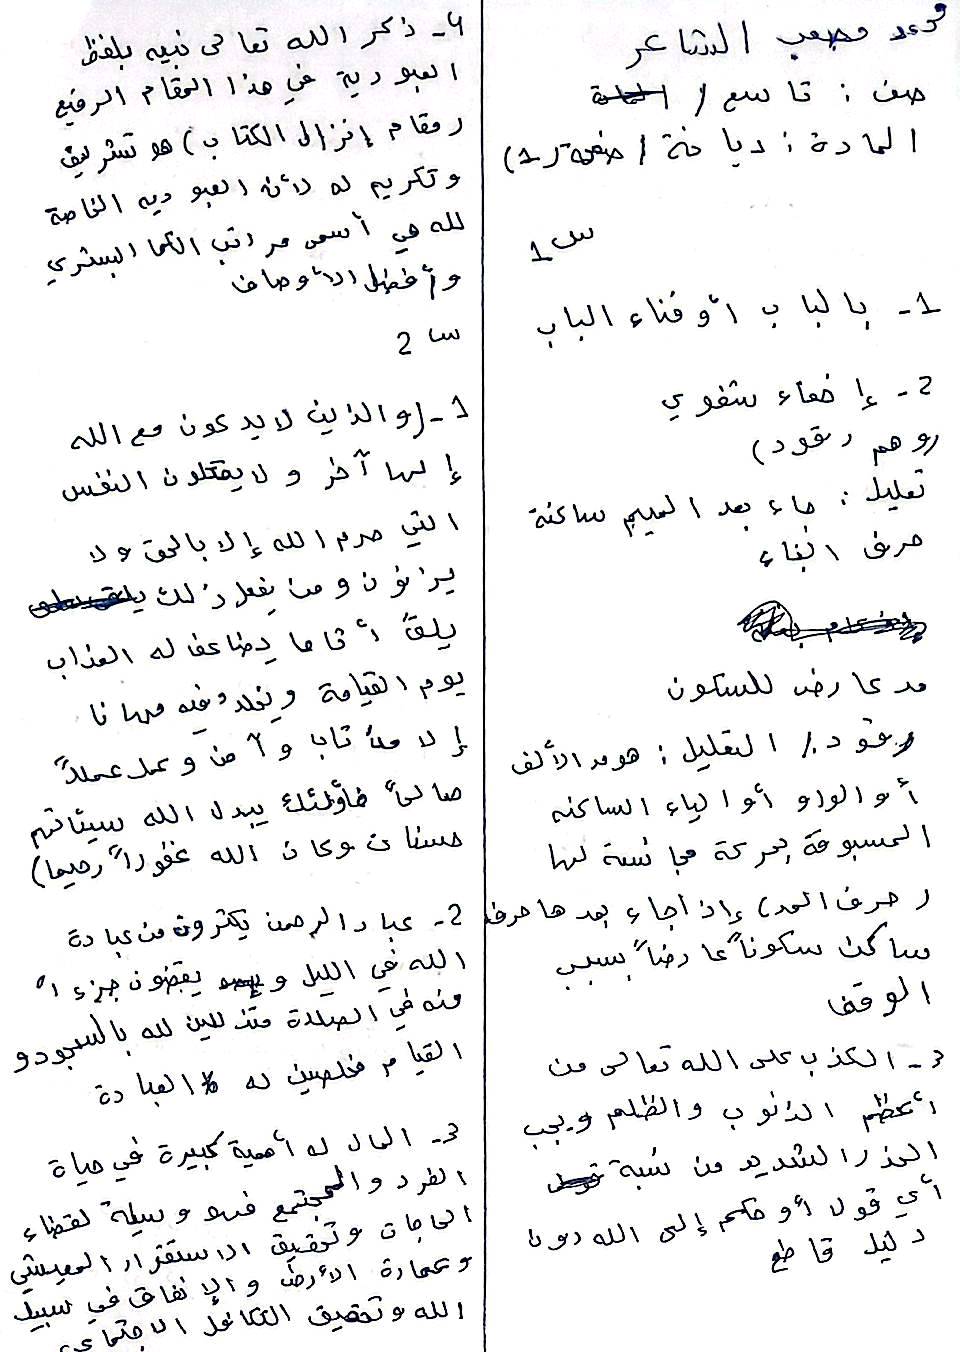 مصعب الشاعر
صف : تاسع /
المادة : ديانة / صفحة (1)
س1
1- بالباب أو فناء الباب
2- إخفاء شفوي
(وهم رقود)
تعليل : جاء بعد الميم ساكنة
حرف الباء
مد عارض للسكون
رقود / التعليل : هو مد الألف
أو الواو أو الياء الساكنه
المسبوقة بحركة مجانسة لها
(حرف المد) إذا جاء بعدها حرف
ساكن سكوناً عارضاً بسبب
الوقف
3- الكذب على الله تعالى من
أعظم الذنوب والظلم ويجب
الحذر الشديد من نسبة
أي قول أو حكم إلى الله دون
دليل قاطع
4- ذكر الله تعالى نبيه بلفظ
العبودية في هذا المقام الرفيع
(مقام إنزال الكتاب) هو تشريف
وتكريم له لأن العبوديه الخاصة
لله هي أسمى مراتب الكما البشري
وأفضل الأوصاف
س2
1- (والذين لا يدعون مع الله
إلها آخر ولا يقتلون النفس
التي حرم الله إلا بالحق ولا
يزنون ومن يفعل ذلك
يلقَ أثاما يضاعف له العذاب
يوم القيامة ويخلد فيه مهانا
إلا من تاب وآمن وعمل عملاً
صالحاً فأولئك يبدل الله سيئاتهم
حسنات وكان الله غفوراً رحيما)
2- عباد الرحمن يكثرون من عبادة
الله في الليل و يقضون جزءاً
منه في الصلاة متذللين لله بالسجود و
القيام مخلصين له العبادة
3- المال له أهمية كبيرة في حياة
الفرد والمجتمع فهو وسيلة لقضاء
الحاجات وتحقيق الاستقرار المعيشي
وعمارة الأرض والإنفاق في سبيل
الله وتحقيق التكافل الاجتماعي